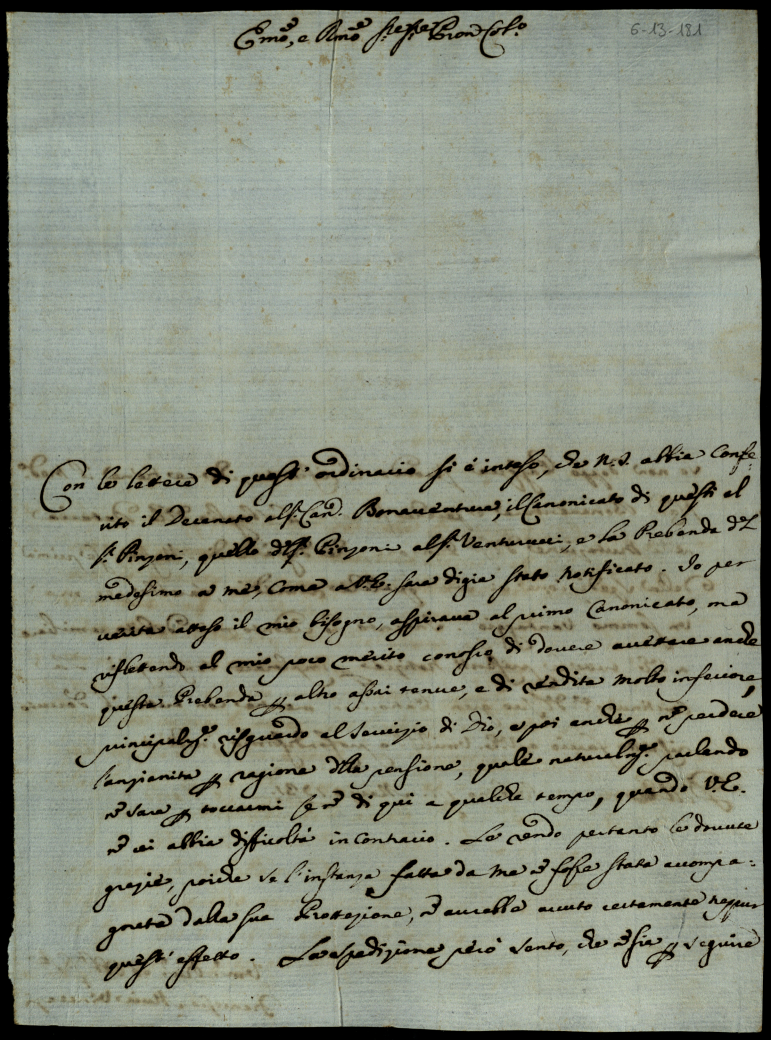 Emo, e Rmo Sre Sre Pron Colo
6-13-181
Con le lettere di quest' ordinario si è inteso, che N. S. abbia confe=
rito il Decanato al Sr. Can. Bonaventura, il Canonicato di questi al
Sr. Pinzoni, quello del Sr. Pinzoni al Sr. Venturucci, e la Prebenda del
medesimo a me, come a V. E. sarà digia stato notificato. Io per
verita atteso il mio bisogno, aspirava al primo Canonicato, ma
riflettendo al mio poco merito conosco di dovere accettare anche
questa Prebenda p altro assai tenue, e di rendita molto inferiore,
principalmte. risguardo al Servizio di Dio, e poi anche p nō perdere
l'anzianita p ragione della pensione, quale naturalmte. parlando
nō sara p toccarmi se nō di qui a qualche tempo, quando V. E.
nō ci abbia difficoltà in contrario. Le rendo pertanto le dovute
grazie, poiche se l'instanza fatta da me nō fosse stata accompa=
gnata dalla sua Protezione, nō avrebbe avuto certamente neppur
quest' effetto. La spedizione però sento, che nō sia p seguire